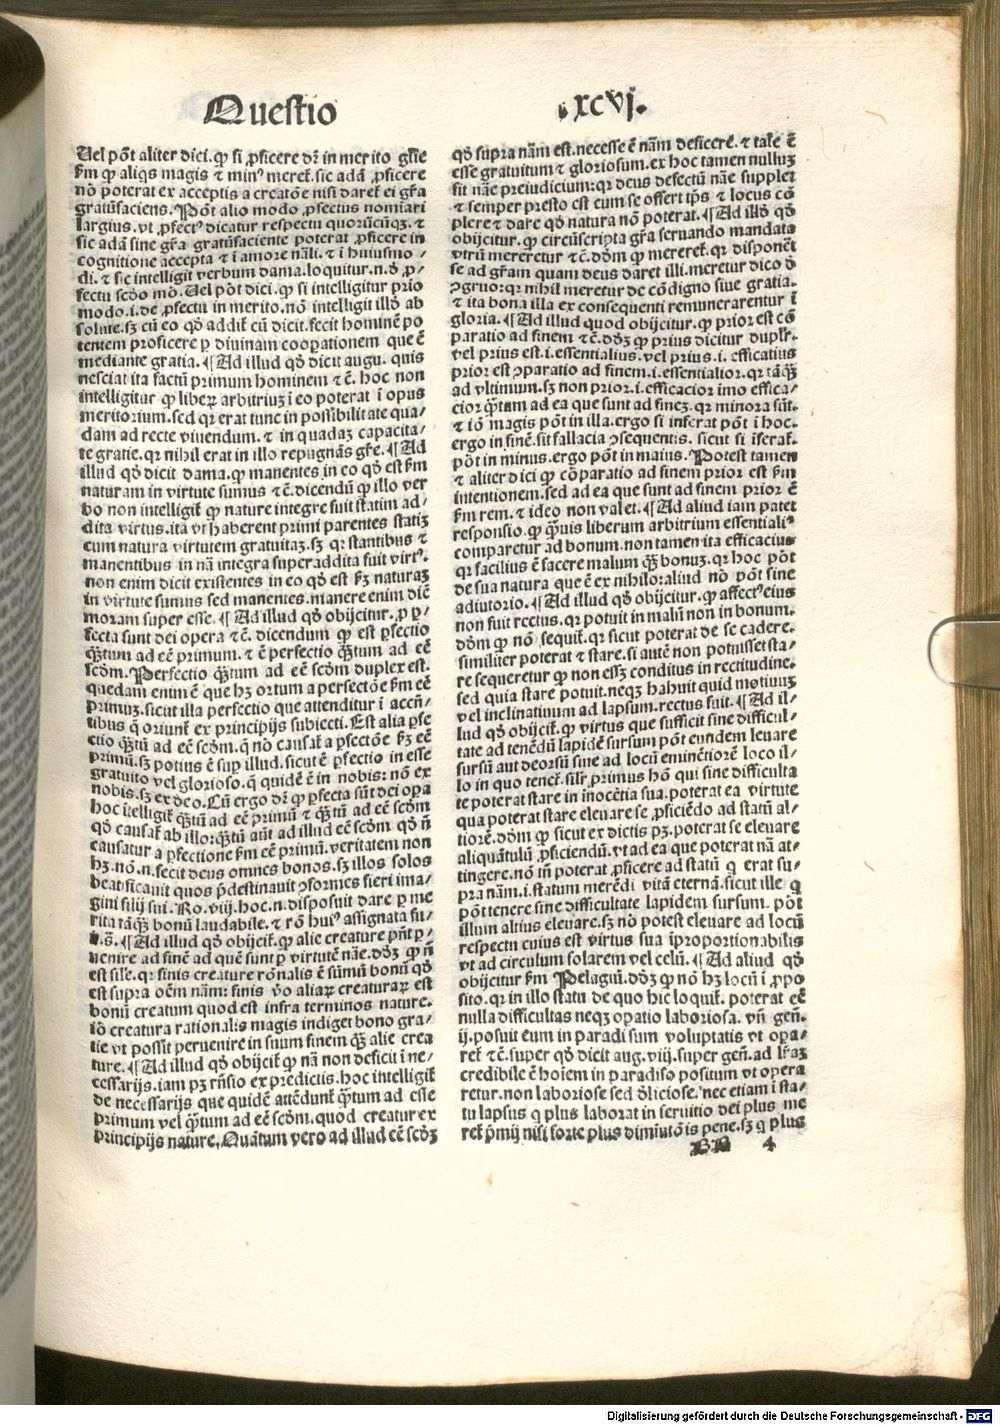 Questio
.xcvj.
Uel põt aliter dici. ꝙ si ꝓficere dr̃ in merito gl̃ie
ẜm ꝙ aliqͥs magis ⁊ minꝰ meret̃. sic adã ꝓficere
nõ poterat ex acceptis a creatoͤe nisi daret̃ ei gr̃a
gratũfaciens. Põt alio modo ꝓfectus nominari
largius. vt ꝓfectꝰ dicatur respectu quorũcũqꝫ. ⁊
sic adã sine gr̃a gratũfaciente poterat ꝓficere in
cognitione accepta ⁊ ĩ amore nãli. ⁊ ĩ huiusmo⸗
di. ⁊ sic intelligit verbum dama. loquitur. n. ð ꝓ⸗
fectu scðo mõ. Uel põt dici. ꝙ si intelligitur prio
modo. i. de ꝓfectu in merito. nõ intelligit illð ab
solute. sꝫ cũ eo qð addit̃ cũ dicit. fecit hominẽ po
tentem proficere ꝑ diuinam cooꝑationem que ẽ
mediante gratia. ¶ Ad illud qð dicit augu. quis
nesciat ita factũ primum hominem ⁊ c̃. hoc non
intelligitur ꝙ liberꝝ arbitriuꝫ ĩ eo poterat ĩ opus
meritorium. sed qꝛ erat tunc in possibilitate qua⸗
dam ad recte viuendum. ⁊ in quadaꝫ capacita⸗
te gratie. qꝛ nihil erat in illo repugnãs gr̃e. ¶ Ad
illud qð dicit dama. ꝙ manentes in eo qð est ẜm
naturam in virtute sumus ⁊ c̃. dicendũ ꝙ illo ver
bo non intelligit̃ ꝙ nature integre fuit statim ad⸗
dita virtus. ita vt haberent primi parentes statiꝫ
cum natura virtutem gratuitaꝫ. sꝫ qꝛ stantibus ⁊
manentibus in nã integra superaddita fuit virtꝰ.
non enim dicit existentes in eo qð est ẜꝫ naturaꝫ
in virtute sumus sed manentes. manere enim dic̃
moram super esse. ¶ Ad illud qð obijcitur. ꝙ ꝑ⸗
fecta sunt dei opera ⁊ c̃. dicendum ꝙ est ꝑfectio
qͣ̃tum ad eẽ primum. ⁊ ẽ perfectio qͣ̃tum ad eẽ
scðm. Perfectio qͣ̃tum ad eẽ scðm duplex est.
quedam enim ẽ que hꝫ ortum a perfectoͤe ẜm eẽ
primuꝫ. sicut illa perfectio que attenditur ĩ accñ⸗
tibus q̃ oriunt̃ ex principijs subiecti. Est alia ꝑfe
ctio qͣ̃tũ ad eẽ scðm. q̃ nõ causat̃ a ꝑfectoͤe ẜꝫ eẽ
primũ. sꝫ potius ẽ suꝑ illud. sicut ẽ ꝑfectio in esse
gratuito vel glorioso. q̃ quidẽ ẽ in nobis: nõ ex
nobis. sꝫ ex deo. Cũ ergo dr̃ ꝙ ꝑfecta sũt dei oꝑa
hoc ĩtelligit̃ qͣ̃tũ ad eẽ primũ ⁊ qͣ̃tũ ad eẽ scðm
qð causat̃ ab illo: qͣ̃tũ aũt ad illud eẽ scðm qð ñ
causatur a ꝑfectione ẜm eẽ primũ. veritatem non
hꝫ. nõ. n. fecit deus omnes bonos. sꝫ illos solos
beatificauit quos p̃destinauit ꝯformes fieri ima⸗
gini filij sui. Ro. viij. hoc. n. disposuit dare ꝑ me
rita tãqͣ̃ bonũ laudabile. ⁊ rõ huiꝰ assignata su⸗
ꝑ. ¶ Ad illud qð obijcit̃. ꝙ alie creature pñt ꝑ⸗
uenire ad finẽ ad quẽ sunt ꝑ virtutẽ nãe. dõꝫ ꝙ ñ
est sil̃e. qꝛ finis creature rõnalis ẽ sũmũ bonũ qð
est supra oẽm nãm: finis ṽo aliaꝝ creaturaꝝ est
bonũ creatum quod est infra terminos nature.
iõ creatura rationalis magis indiget bono gra⸗
tie vt possit peruenire in suum finem qͣ̃ alie crea
ture. ¶ Ad illud qð obijcit̃ ꝙ nã non deficit ĩ ne⸗
cessarijs. iam pꝫ rñsio ex predictis. hoc intelligit̃
de necessarijs que quidẽ attẽdunt̃ qͣ̃tum ad esse
primum vel qͣ̃tum ad eẽ scðm. quod creatur ex
principijs nature. Quãtum vero ad illud eẽ scðꝫ
qð supra nãm est. necesse ẽ nãm deficere. ⁊ tale ẽ
esse gratuitum ⁊ gloriosum. ex hoc tamen nulluꝫ
fit nãe preiudicium: qꝛ deus defectũ nãe supplet
⁊ semper presto est cum se offert tp̃s ⁊ locus cõ
plere ⁊ dare qð natura nõ poterat. ¶ Ad illð qð
obijcitur. ꝙ circũscripta gr̃a seruando mandata
vtrũ mereretur ⁊ c̃. dõm ꝙ mereret̃. qꝛ disponẽt
se ad gr̃am quam deus daret illi. meretur dico ð
ꝯgruo: qꝛ nihil meretur de cõdigno siue gratia.
⁊ ita bona illa ex consequenti remunerarentur ĩ
gloria. ¶ Ad illud quod obijcitur. ꝙ prior est cõ
paratio ad finem ⁊ c̃. dõꝫ ꝙ prius dicitur duplr̃.
vel prius est. i. essentialius. vel prius. i. efficatius
prior est ꝯparatio ad finem. i. essentialior. qꝛ tãqͣ̃
ad vltimum. sꝫ non prior. i. efficacior imo effica⸗
cior qͣ̃tum ad ea que sunt ad fineꝫ. qꝛ minora sũt.
⁊ iõ magis põt in illa. ergo si inferat põt ĩ hoc.
ergo in finẽ. fit fallacia ꝯsequentis. sicut si ĩferat̃.
põt in minus. ergo põt in maius. Potest tamen
⁊ aliter dici ꝙ cõparatio ad finem prior est ẜm
intentionem. sed ad ea que sunt ad finem prior ẽ
ẜm rem. ⁊ ideo non valet. ¶ Ad aliud iam patet
responsio. ꝙ qͣ̃uis liberum arbitrium essentialiꝰ
comparetur ad bonum. non tamen ita efficacius
qꝛ facilius ẽ facere malum qͣ̃ bonuꝫ. qꝛ hoc põt
de sua natura que ẽ ex nihilo: aliud nõ põt sine
adiutorio. ¶ Ad illud qð obijcitur. ꝙ affectꝰ eius
non fuit rectus. qꝛ potuit in malũ non in bonum.
dõm ꝙ nõ sequit̃. qꝛ sicut poterat de se cadere.
similiter poterat ⁊ stare. si autẽ non potuisset sta⸗
re sequeretur ꝙ non esseꝫ conditus in rectitudine.
sed quia stare potuit. neqꝫ habuit quid motiuuꝫ
vel inclinatiuum ad lapsum. rectus fuit. ¶ Ad il⸗
lud qð obijcit̃. ꝙ virtus que sufficit sine difficul⸗
tate ad tenẽdũ lapidẽ sursum põt eundem leuare
sursũ aut deorsũ siue ad locũ eminẽtiorẽ loco il⸗
lo in quo tenet̃. silr̃ primus hõ qui sine difficulta
te poterat stare in ĩnocẽtia sua. poterat ea virtute
qua poterat stare eleuare se ꝓficiẽdo ad statũ al⸗
tiorẽ. dõm ꝙ sicut ex dictis pꝫ. poterat se eleuare
aliquãtulũ ꝓficiendũ. vt ad ea que poterat nã at⸗
tingere. nõ tñ poterat ꝓficere ad statũ q erat su⸗
pra nãm. i. statum merẽdi vitã eternã. sicut ille q
põt tenere sine difficultate lapidem sursum. põt
illum altius eleuare. sꝫ nõ potest eleuare ad locũ
respectu cuius est virtus sua ĩproportionabilis
vt ad circulum solarem vel celũ. ¶ Ad aliud qð
obijcitur ẜm Pelagiũ. dõꝫ ꝙ nõ hꝫ locũ ĩ ꝓpo
sito. qꝛ in illo statu de quo hic loquit̃. poterat eẽ
nulla difficultas neqꝫ oꝑatio laboriosa. vñ geñ.
ij. posuit eum in paradisum voluptatis vt oꝑa⸗
ret̃ ⁊ c̃. super qð dicit aug. viij. super geñ. ad lr̃aꝫ
credibile ẽ hoĩem in paradiso positum vt opera
retur. non laboriose sed ðliciose. nec etiam ĩ sta⸗
tu lapsus q plus laborat in seruitio dei plus me
ret̃ p̃mij nisi forte plus diminutoĩs pene. sꝫ q plus
BB 4
Digitalisierung gefördert durch die Deutsche Forschungsgemeinschaft - DFG